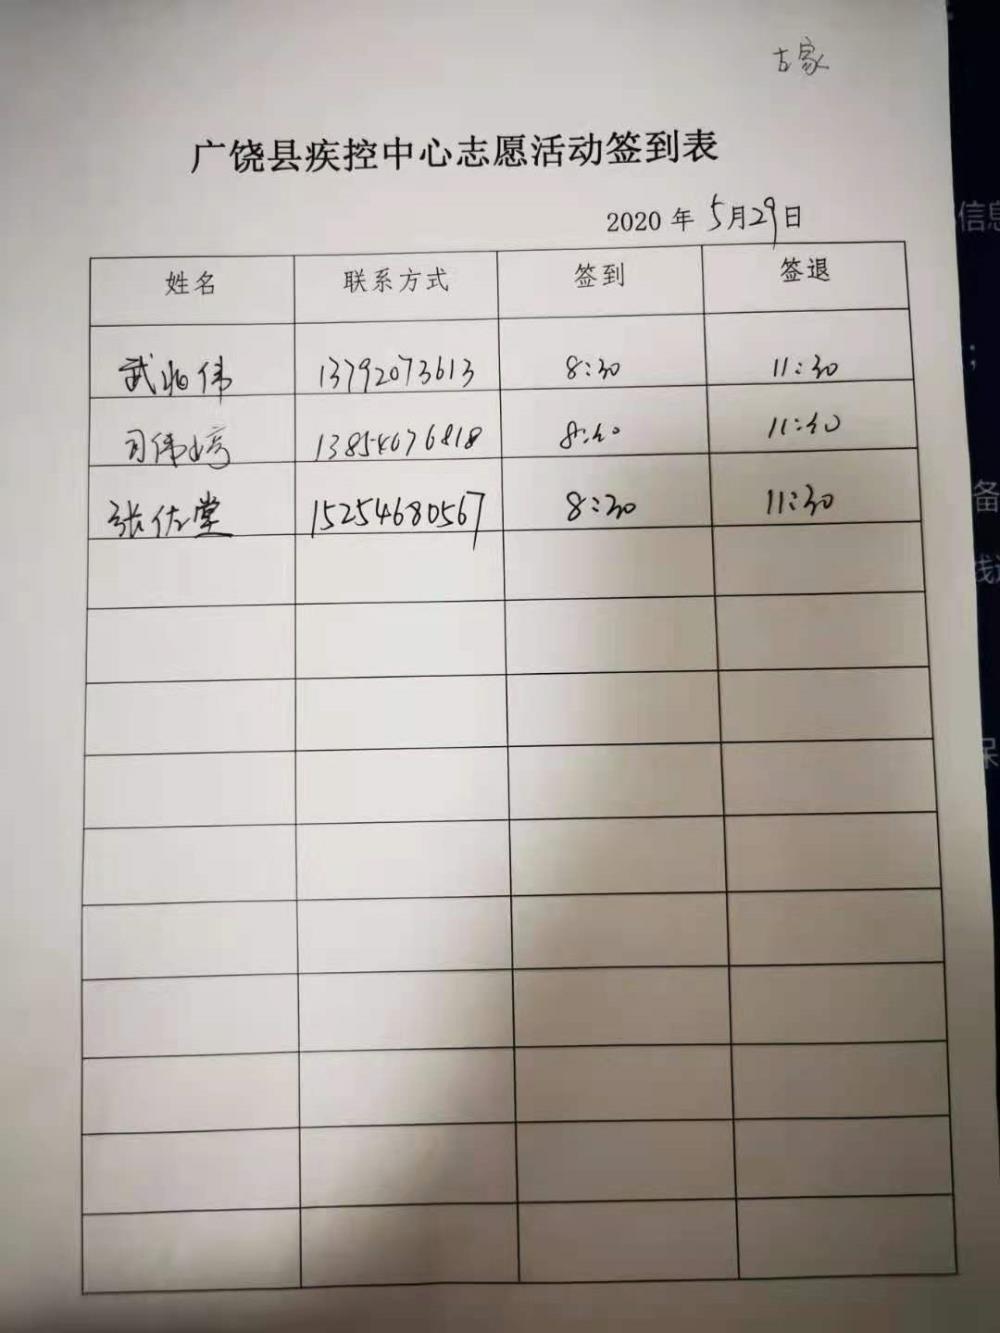 古家
广饶县疾控中心志愿活动签到表
2020 年 5月29日
姓名 联系方式 签到 签退
武兆伟 13792073613 8:30 11:30
司伟婷 13854676818 8:40 11:40
张佐堂 15254680567 8:30 11:30
信息
;
备
线
保